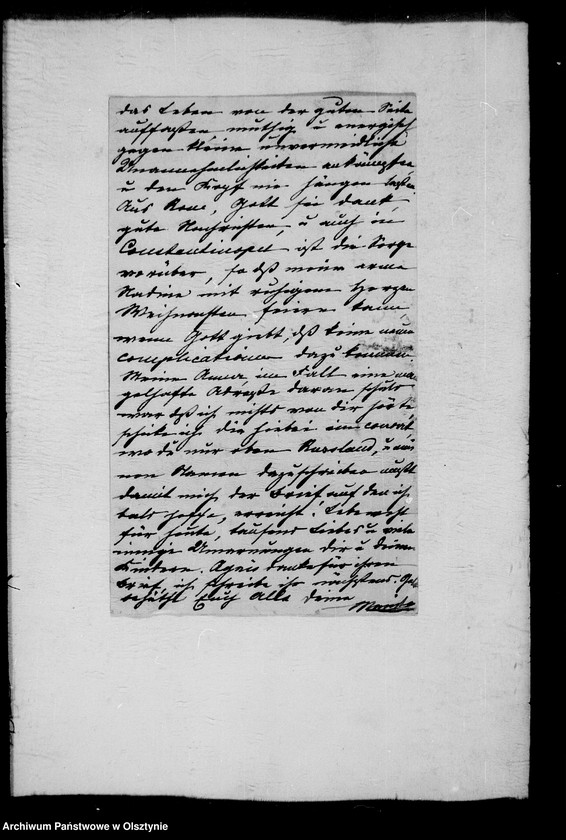 das Leben von der guten Seite
auffassen, muthig u energisch
gegen kleine unvermeidliche
Unannehmlichkeiten ankämpfen
u den Kopf nie hängen lassen.
Aus Rom, Gott sei dank
gute Nachrichten, u auch in
Constantinopel ist die Sorge
vorüber, so dß meine arme
Nadine mit ruhigem Herzen
Weihnachten feiern kann
wenn Gott giebt, dß keine neuen
complicationen dazu kommen.
Meine Anna, im Fall eine man
gelhafte Adresse daran schuld
war dß ich nichts von dir hörte
schicke ich dir hiebei ein couvert
wo du nur oben Russland, u
nen Namen dazuschreiben mußt
damit mich der Brief auf den ich
bals hoffe, erreicht! Lebe wohl
für heute, tausend Liebes u viele
innige Umarmungen dir u deinen
Kindern. Agnes danke für ihren
Brief ich schreibe ihr nächstens. Gott
behüthe Euch Alle deine